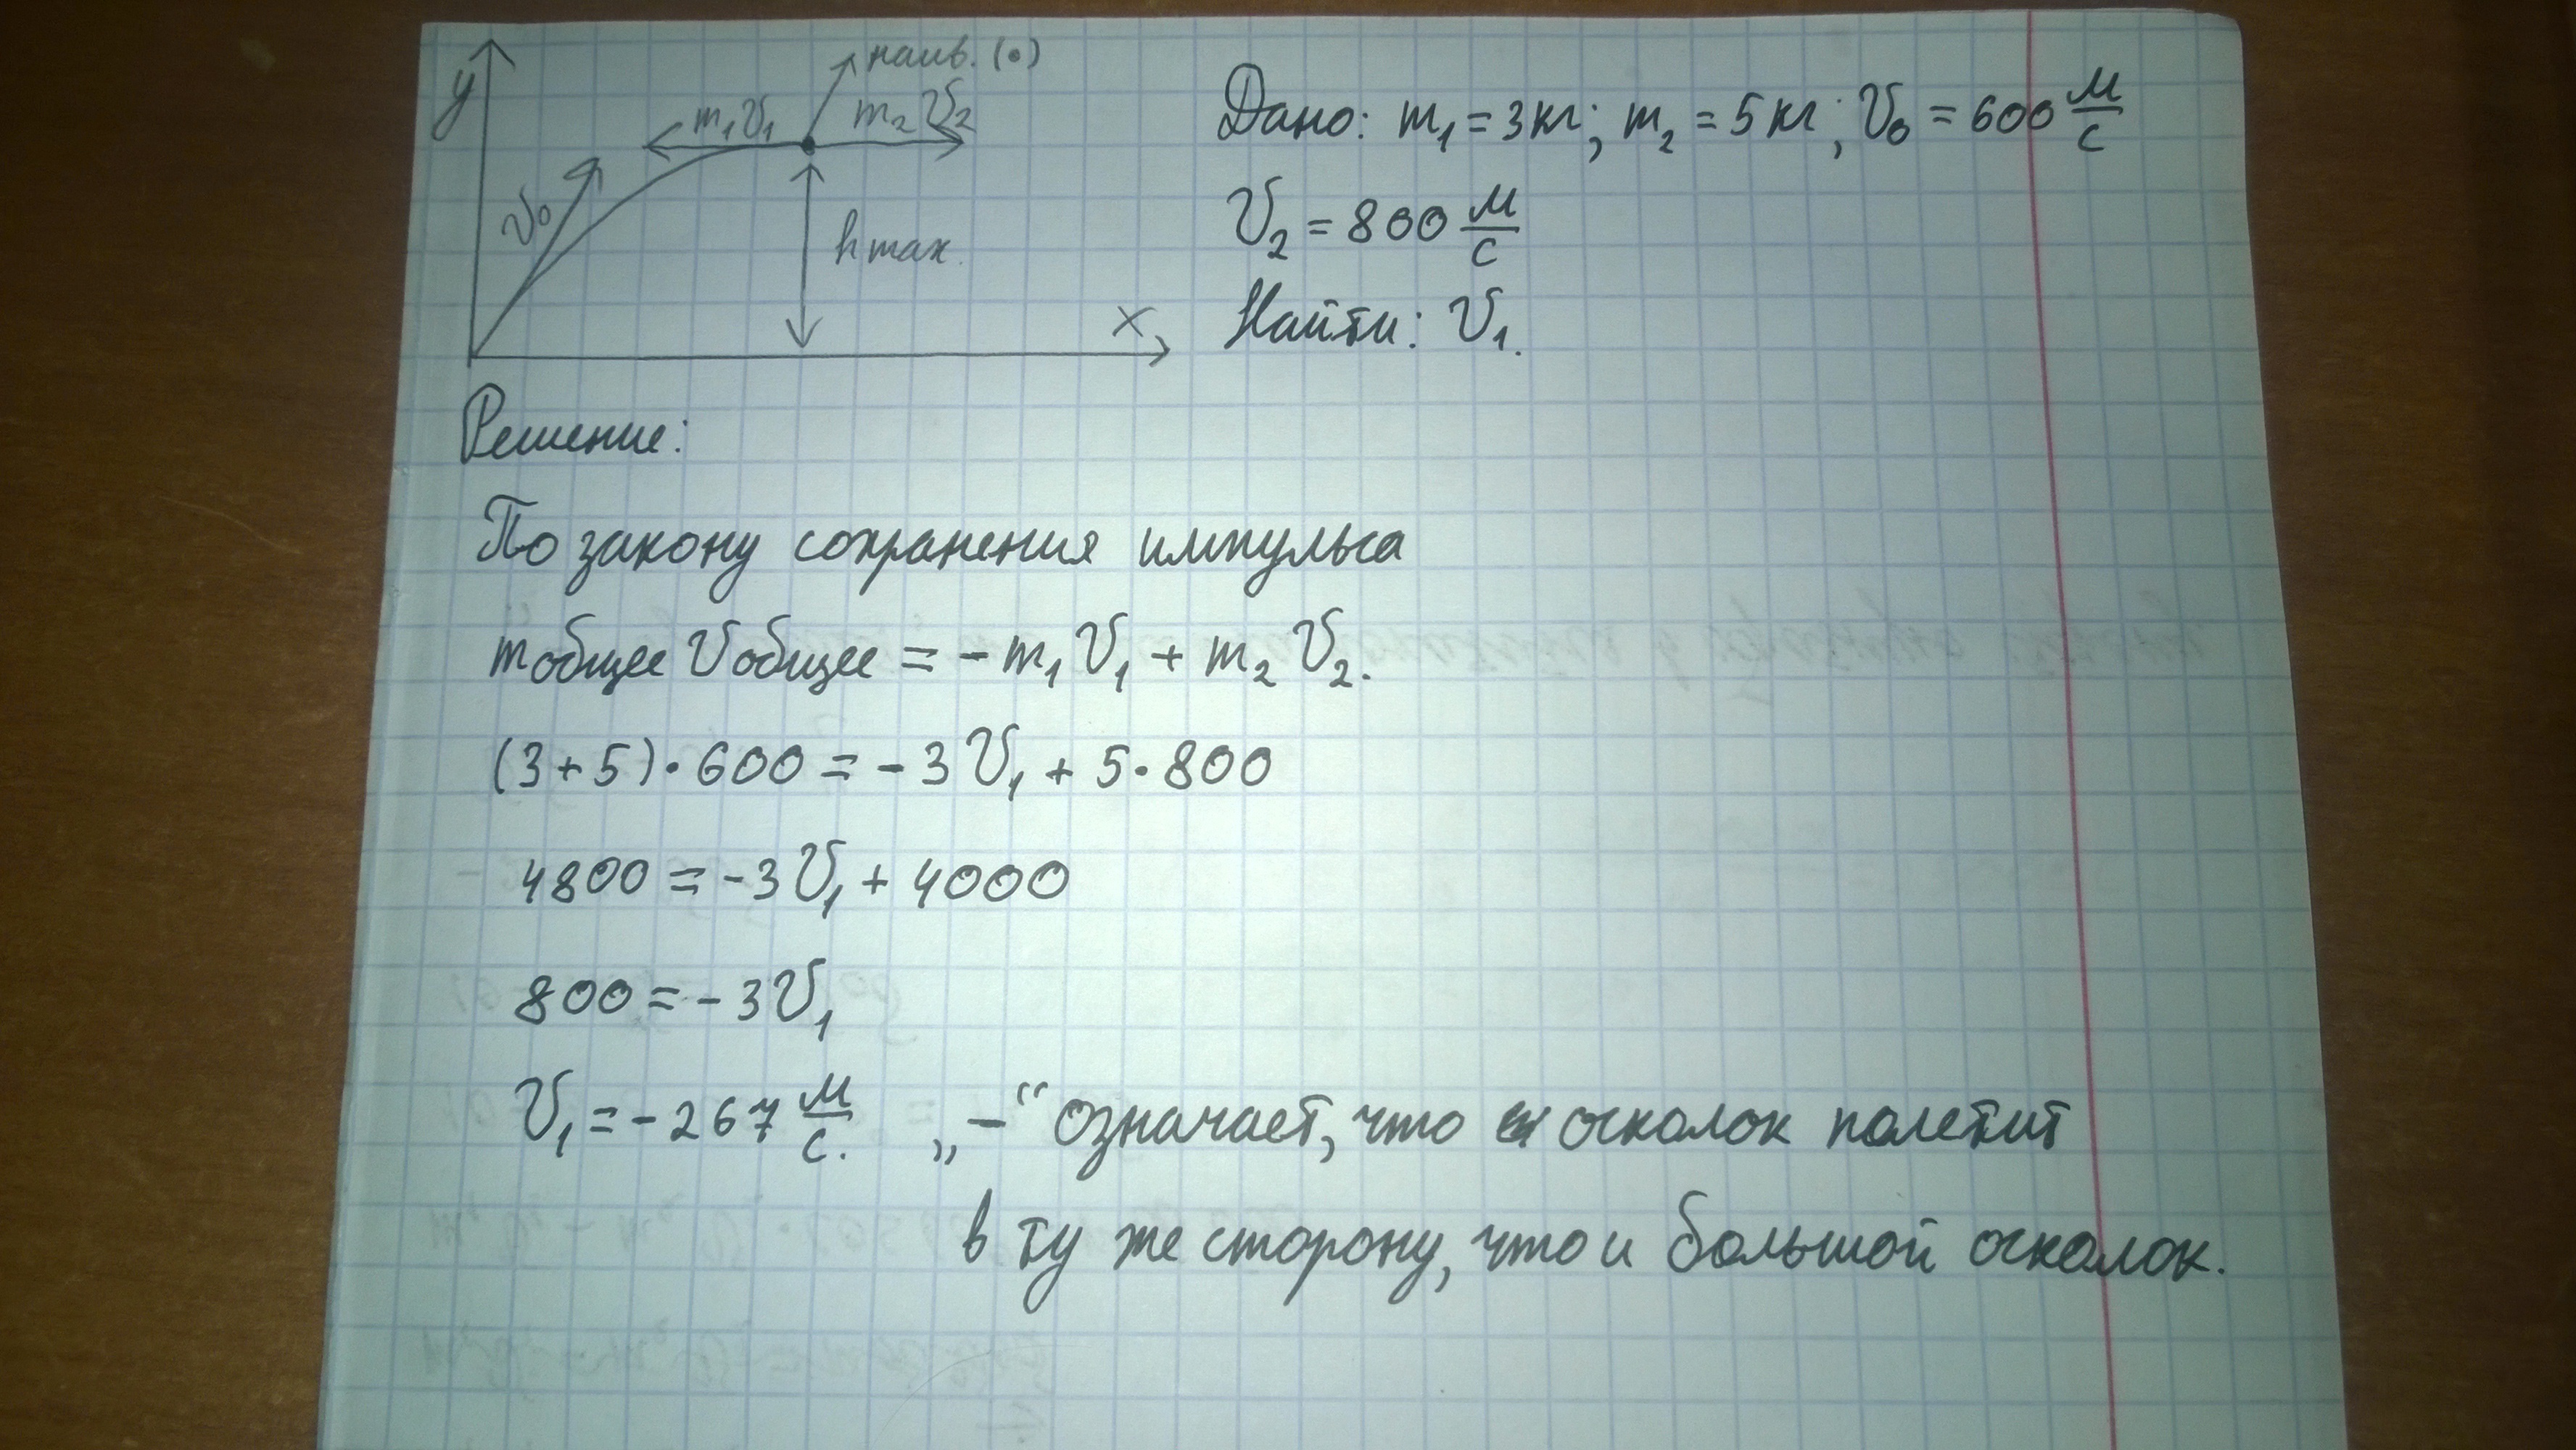 y
наив. (•)
m₁V₁
m₂V₂
V₀
hmax.
x
Дано: m₁ = 3кг; m₂ = 5кг; V₀ = 600 м/с
V₂ = 800 м/с
Найти: V₁.
Решение:
По закону сохранения импульса
mобщее Vобщее = - m₁V₁ + m₂V₂.
(3+5)·600 = - 3V₁ + 5·800
4800 = -3V₁ + 4000
800 = - 3V₁
V₁ = - 267 м/с. „-“ означает, что осколок полетит
в ту же сторону, что и большой осколок.